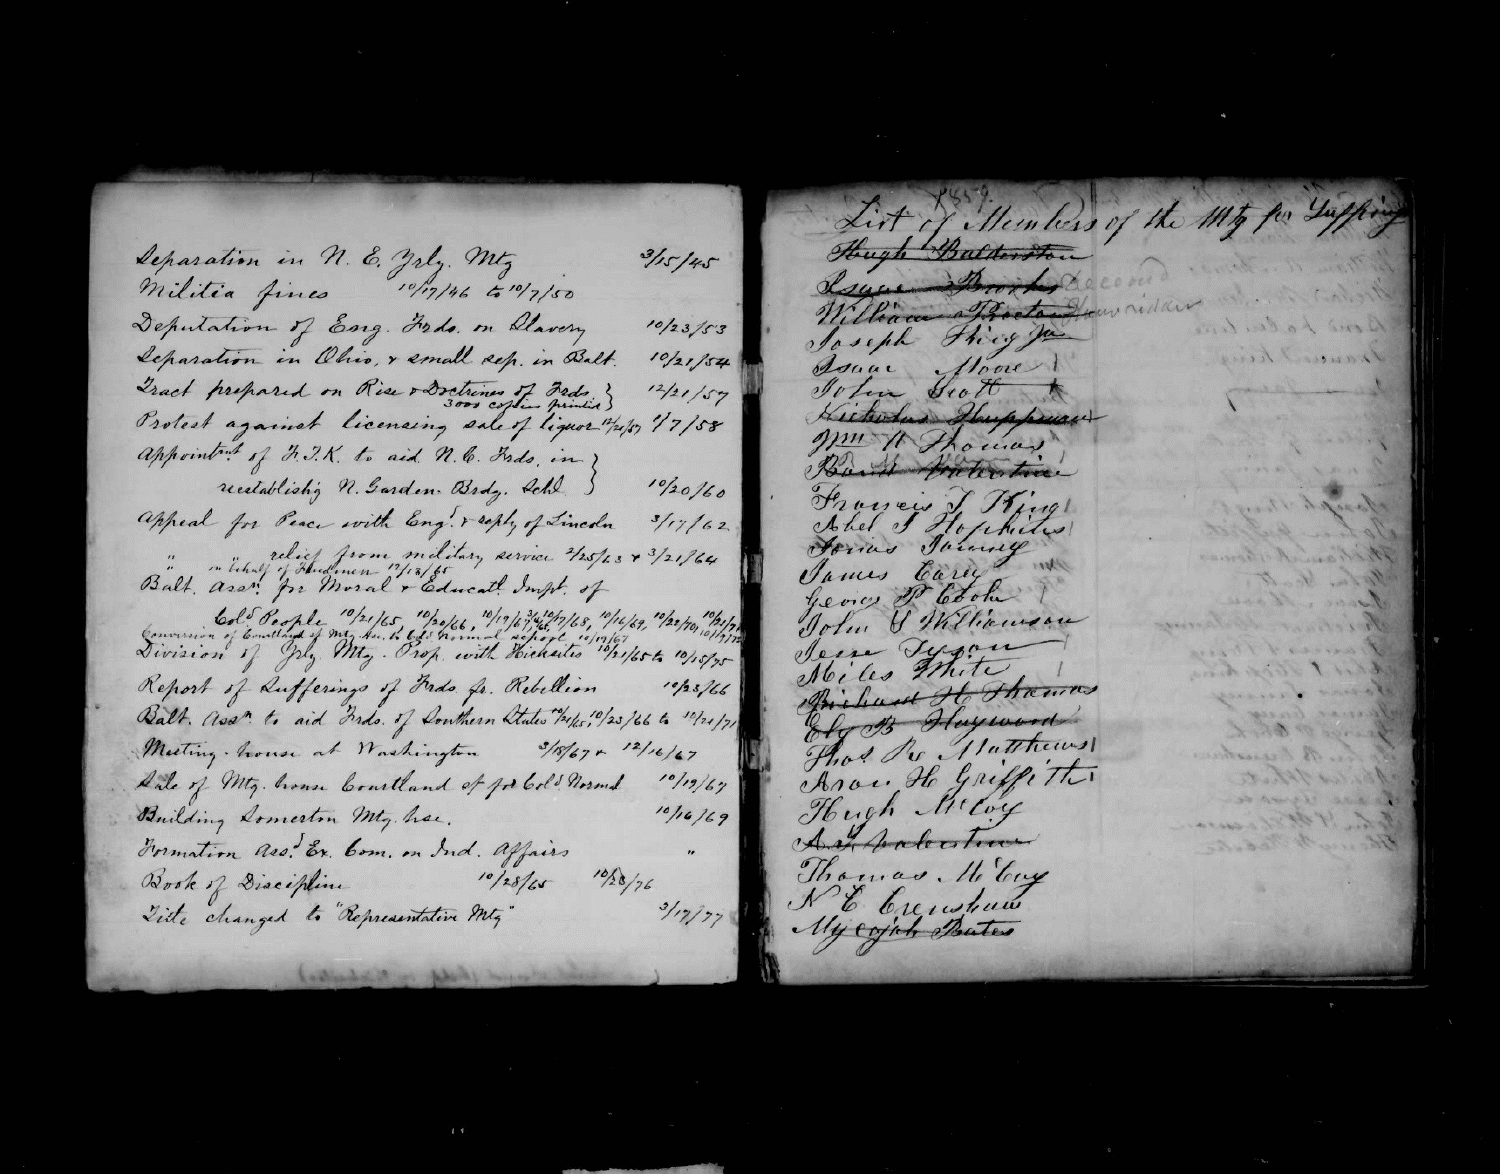 Separation in N. E. Yrly. Mtg 3/15/45
Militia fines 10/17/46 to 10/7/50
Deputation of Eng. Frds. on Slavery 10/23/53
Separation in Ohio, & small sep. in Balt. 10/21/54
Tract prepared on Rise & Doctrines of Frds 12/21/57
3000 copies printed
Protest against licensing sale of liquor 12/21/57 1/7/58
Appointmt of F.T.K. to aid N.C. Frds. in
reestablishg N. Garden Brdg. Schl 10/20/60
Appeal for Peace with Engd. & reply of Lincoln 3/17/62
" " relief from military service 2/25/63 & 3/21/64
" on behalf of Freedmen 12/18/65
Balt. Assn. for Moral & Educatl. Impt. of
Cold People 10/21/65, 10/20/66, 10/19/67, 10/17/68, 10/16/69, 10/22/70, 10/21/71
Conversion of Courtland st Mtg. hse. to Cold Normal School 10/19/67
Division of Yrly. Mtg. Prop. with Hicksites 10/21/65 to 10/15/75
Report of Sufferings of Frds. fr. Rebellion 10/23/66
Balt. Assn. to aid Frds. of Southern States 10/21/65, 10/23/66 to 10/21/71
Meeting-house at Washington 3/18/67 & 12/16/67
Sale of Mtg. house Courtland st for Cold Normal 10/19/67
Building Somerton Mtg. hse. 10/16/69
Formation Assd. Ex. Com. on Ind. Affairs "
Book of Discipline 10/28/65 10/28/76
Title changed to "Representative Mtg" 3/17/77
1859.
List of Members of the Mtg for Sufferings
Hugh Balderston
Isaac Brooks deceased
William Procter
Joseph King Jr
Isaac Moore
John Scott
Nicholas Huppman
Wm H Thomas
Bond Valentine
Francis T King
Abel J Hopkins
Jonas Janney
James Carey
George P Cook
John S Williamson
Jesse Tyson
Miles White
Richard H Thomas
Ely B Haywood
Thos R Matthews
Aron H Griffith
Hugh McCoy
A Y Valentine
Thomas McCoy
N C Crenshaw
Mycajah Bates